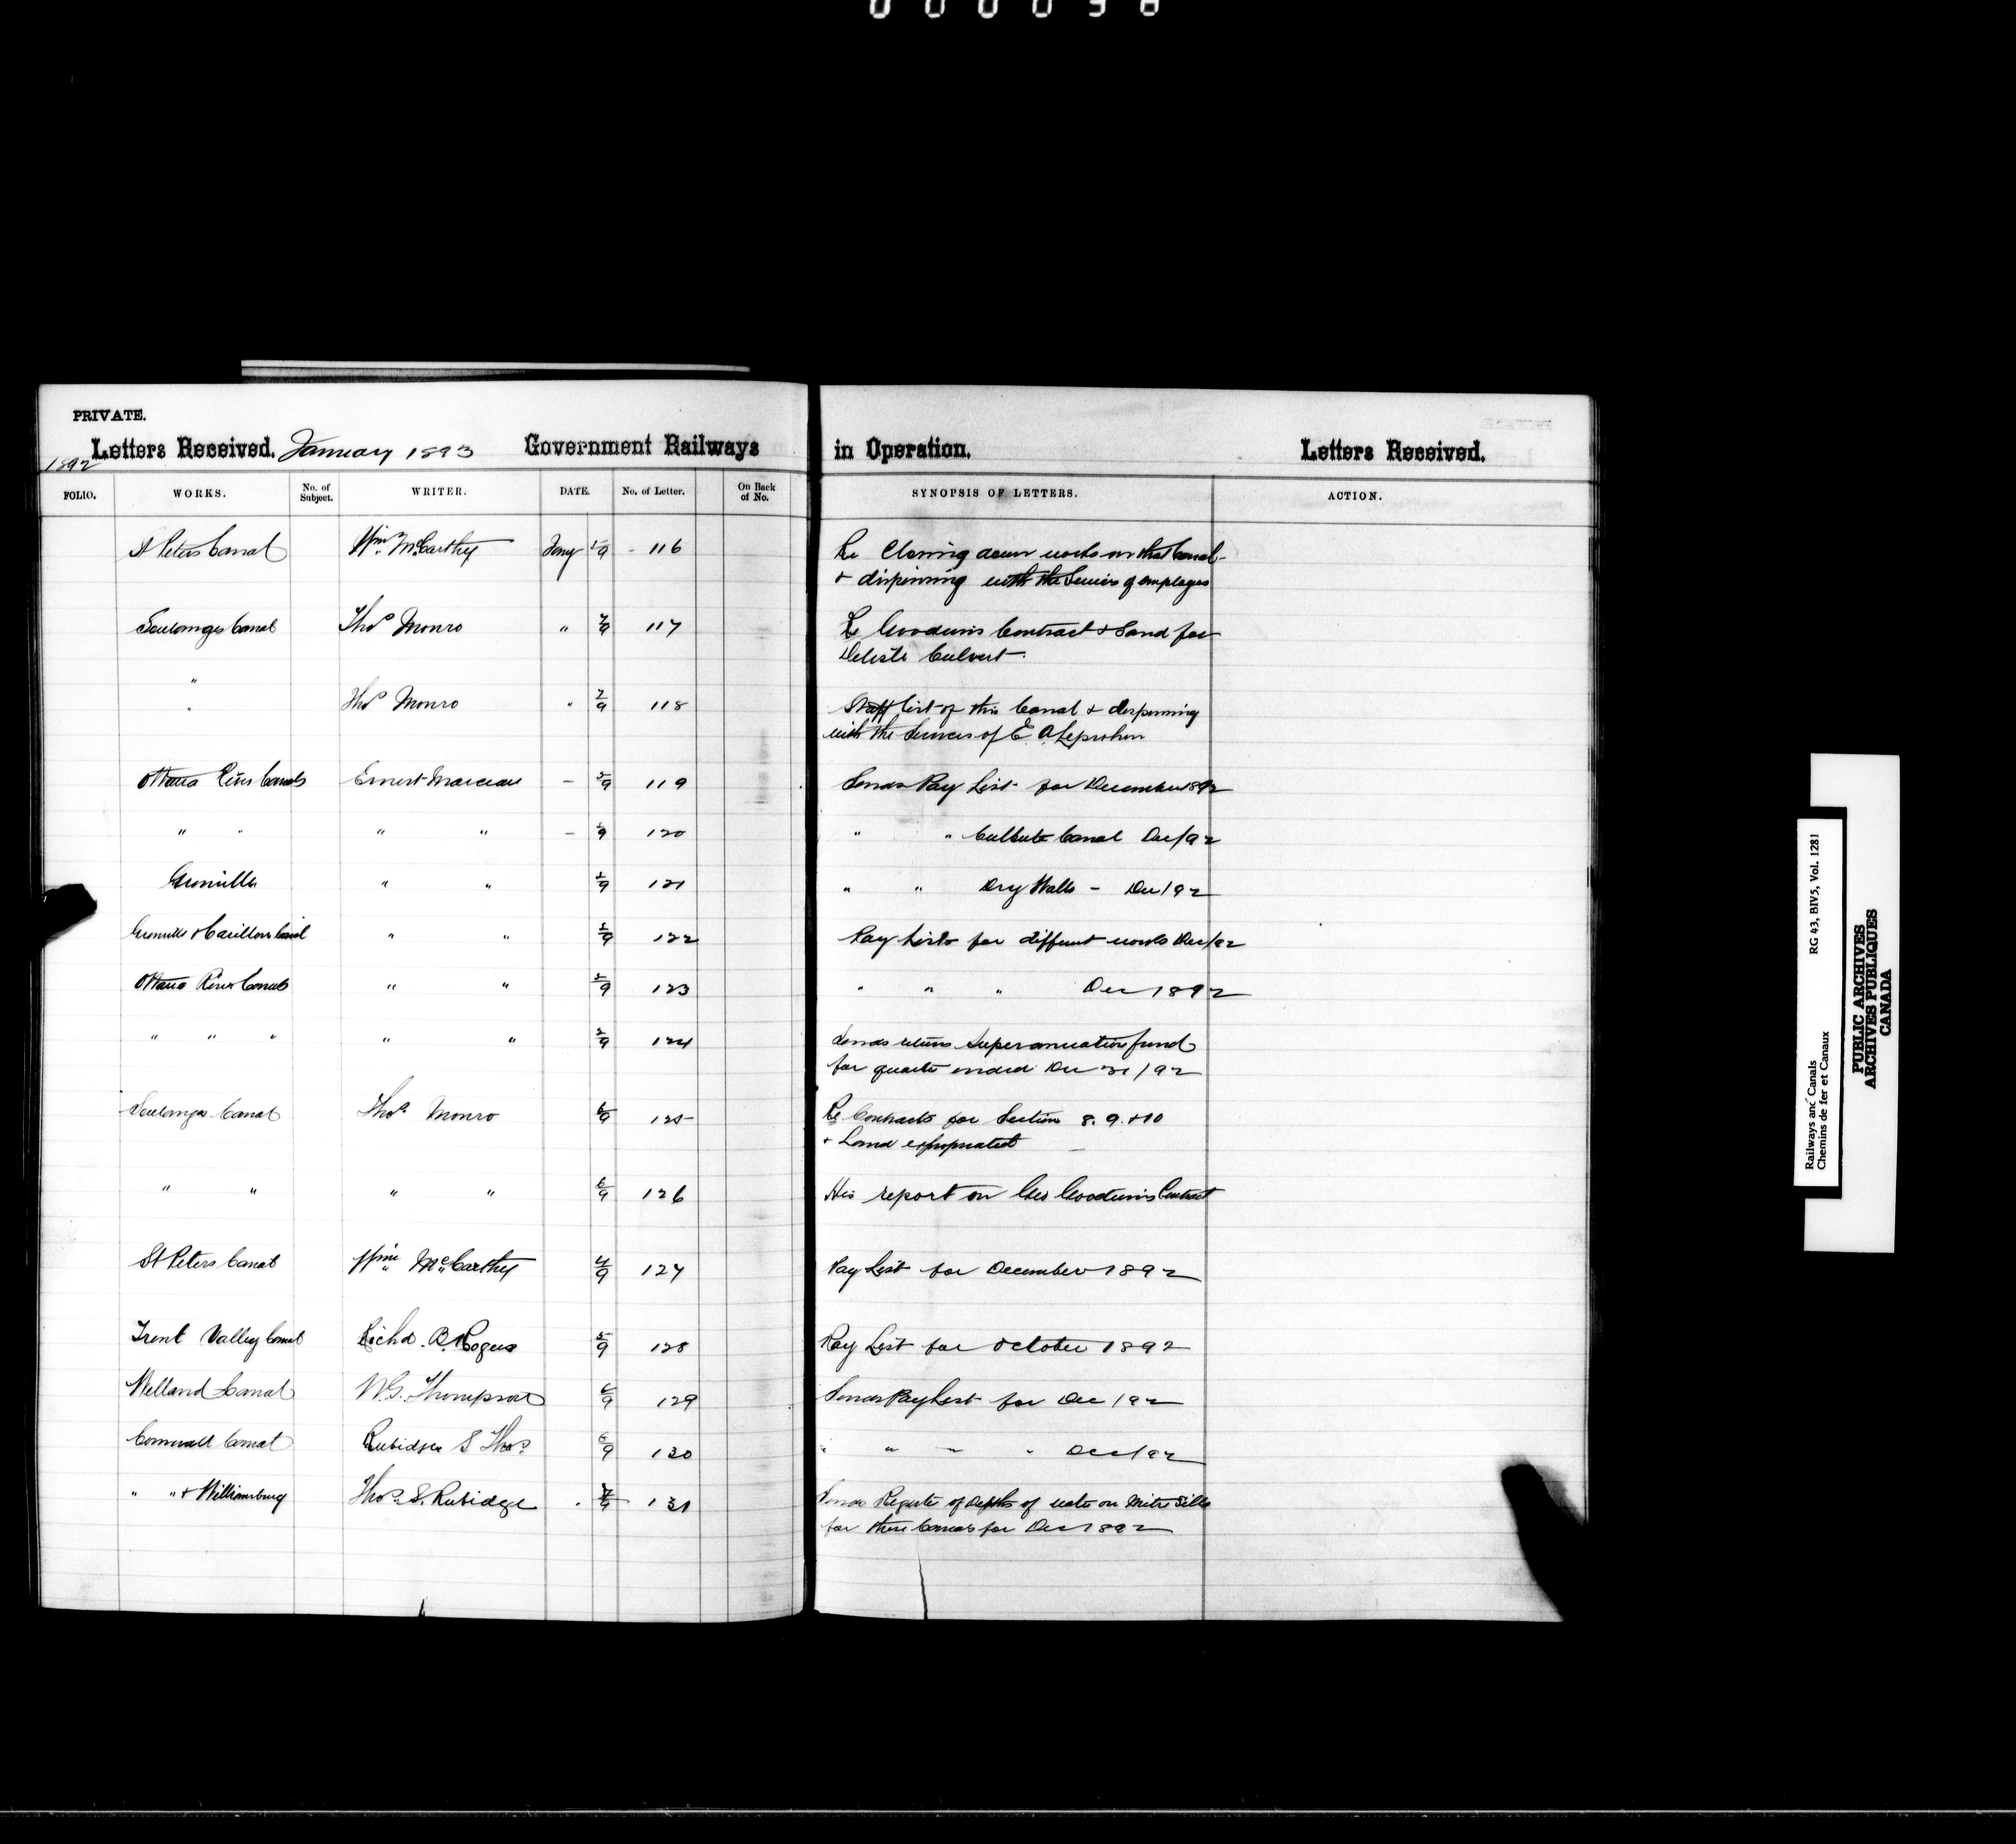 000098
PRIVATE.
Letters Received. January 1893 Government Railways in Operation. Letters Received.
1892
FOLIO. WORKS. No. of Subject. WRITER. DATE. No. of Letter. On Back of No. SYNOPSIS OF LETTERS. ACTION.
St Peters Canal Wm McCarthy Jany 5/9 116 Re Closing down works on that Canal
& dispensing with the Services of employes
Soulanges Canal Thos Monro " 7/9 117 Re Goodwins Contract & Land for
Delisle Culvert
"
" Thos Monro " 7/9 118 Staff list of this Canal & dispensing
with the Services of E A Leprohon
Ottawa River Canals Ernest Marceau - 5/9 119 Sends Pay List for December 1892
" " " " - 5/9 120 " " Culbute Canal Dec/92
Grenville " " 5/9 121 " " Dry Walls - Dec/92
Grenville & Carillon Canal " " 5/9 122 Pay Lists for different works Dec/92
Ottawa River Canals " " 5/9 123 " " " Dec 1892
" " " " " 5/9 124 Sends return Superannuation fund
for quarter ended Dec 31/92
Soulanges Canal Thos Monro 6/9 125 Re Contracts for Section 8. 9. & 10
& Land expropriated
" " " " 6/9 126 His report on Geo Goodwin's Contract
St Peters Canal Wm McCarthy 4/9 127 Pay List for December 1892
Trent Valley Canal Richd. B. Rogers 5/9 128 Pay List for October 1892
Welland Canal W.G. Thompson 6/9 129 Sends Pay List for Dec/92
Cornwall Canal Rubidge S Thos 6/9 130 " " " " Dec/92
" " & Williamsburg Thos. S. Rubidge " 7/9 131 Sends Register of Depths of water on Mitre Sills
for these Canals for Dec 1892
Railways and Canals RG 43, BIV5, Vol. 1281
Chemins de fer et Canaux
PUBLIC ARCHIVES
ARCHIVES PUBLIQUES
CANADA